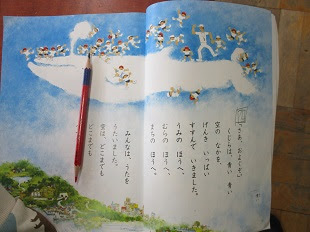 「さあ、およぐぞ。」
くじらは、青い 青い
空の なかを、
げんき いっぱい
すすんで いきました。
うみの ほうへ、
むらの ほうへ、
まちの ほうへ。
みんなは、うたを
うたいました。
空は、どこまでも
どこまでも